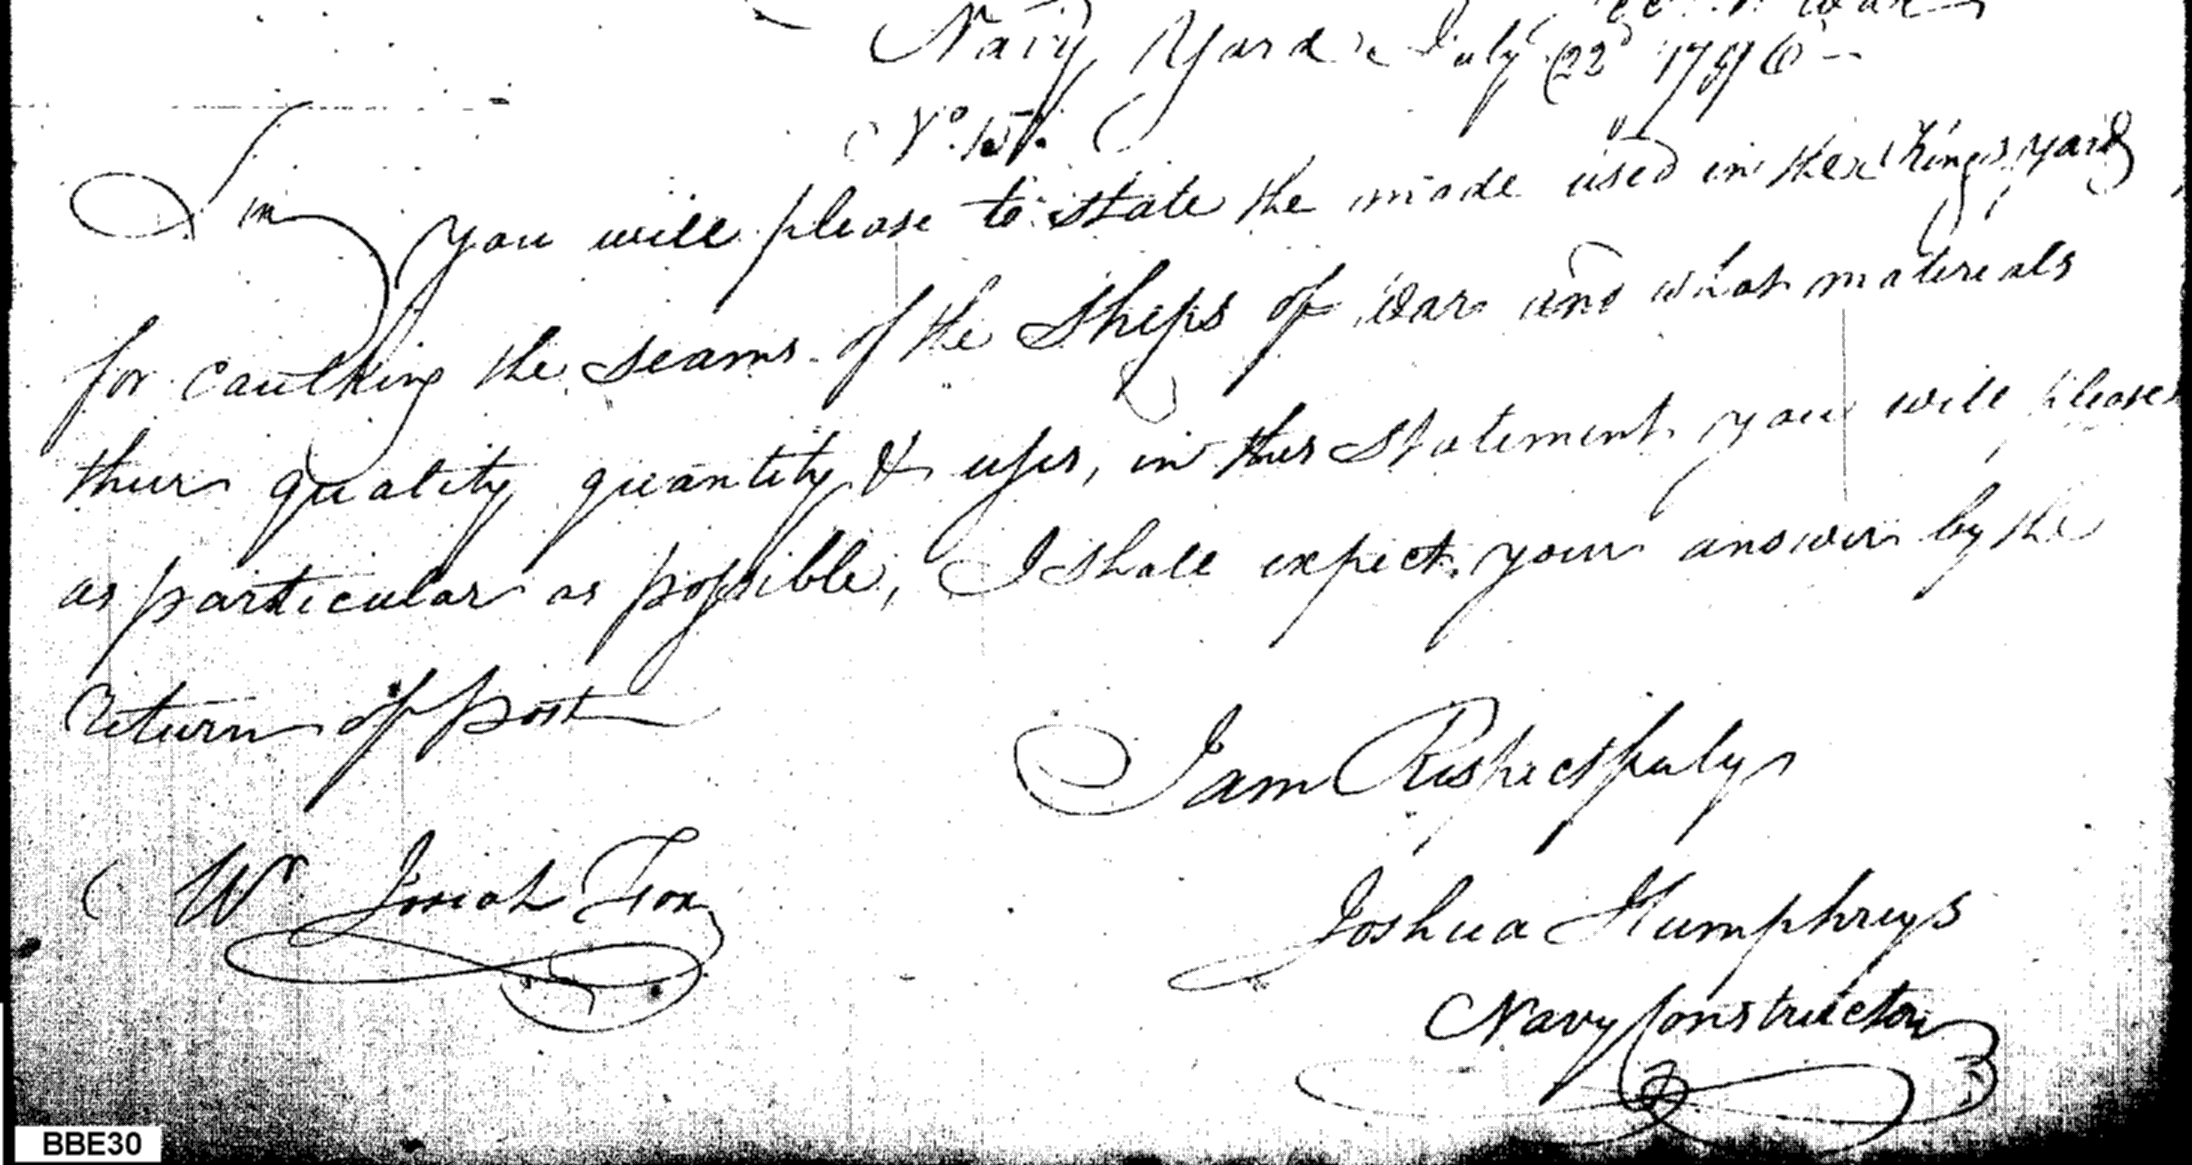 War
Navy Yard July 22d 1796 —
No. 15.
Sir
you will please to state the mode used in the Kings yard
for caulking the seams of the Ships of War and what materials
their quality quantity & uses, in this statement you will please
as particular as possible, I shall expect your answer by the
return of post
I am Respectfuly
Mr Josiah Fox
Joshua Humphreys
Navy Constructor
BBE30